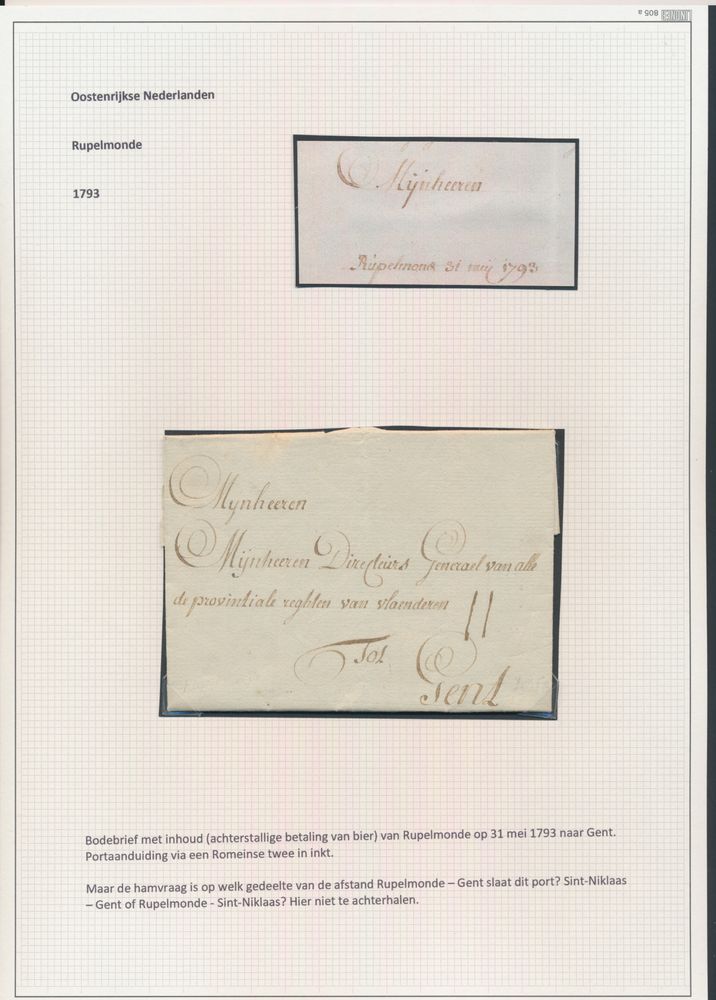 LINDNER 805 a
Oostenrijkse Nederlanden
Rupelmonde
1793
Mijnheeren
Rupelmonde 31 meij 1793
Mijnheeren
Mijnheeren Directeurs Generael van alle
de provintiale reghten van vlaenderen II
Tot
Gent
Bodebrief met inhoud (achterstallige betaling van bier) van Rupelmonde op 31 mei 1793 naar Gent.
Portaanduiding via een Romeinse twee in inkt.
Maar de hamvraag is op welk gedeelte van de afstand Rupelmonde – Gent slaat dit port? Sint-Niklaas
– Gent of Rupelmonde - Sint-Niklaas? Hier niet te achterhalen.